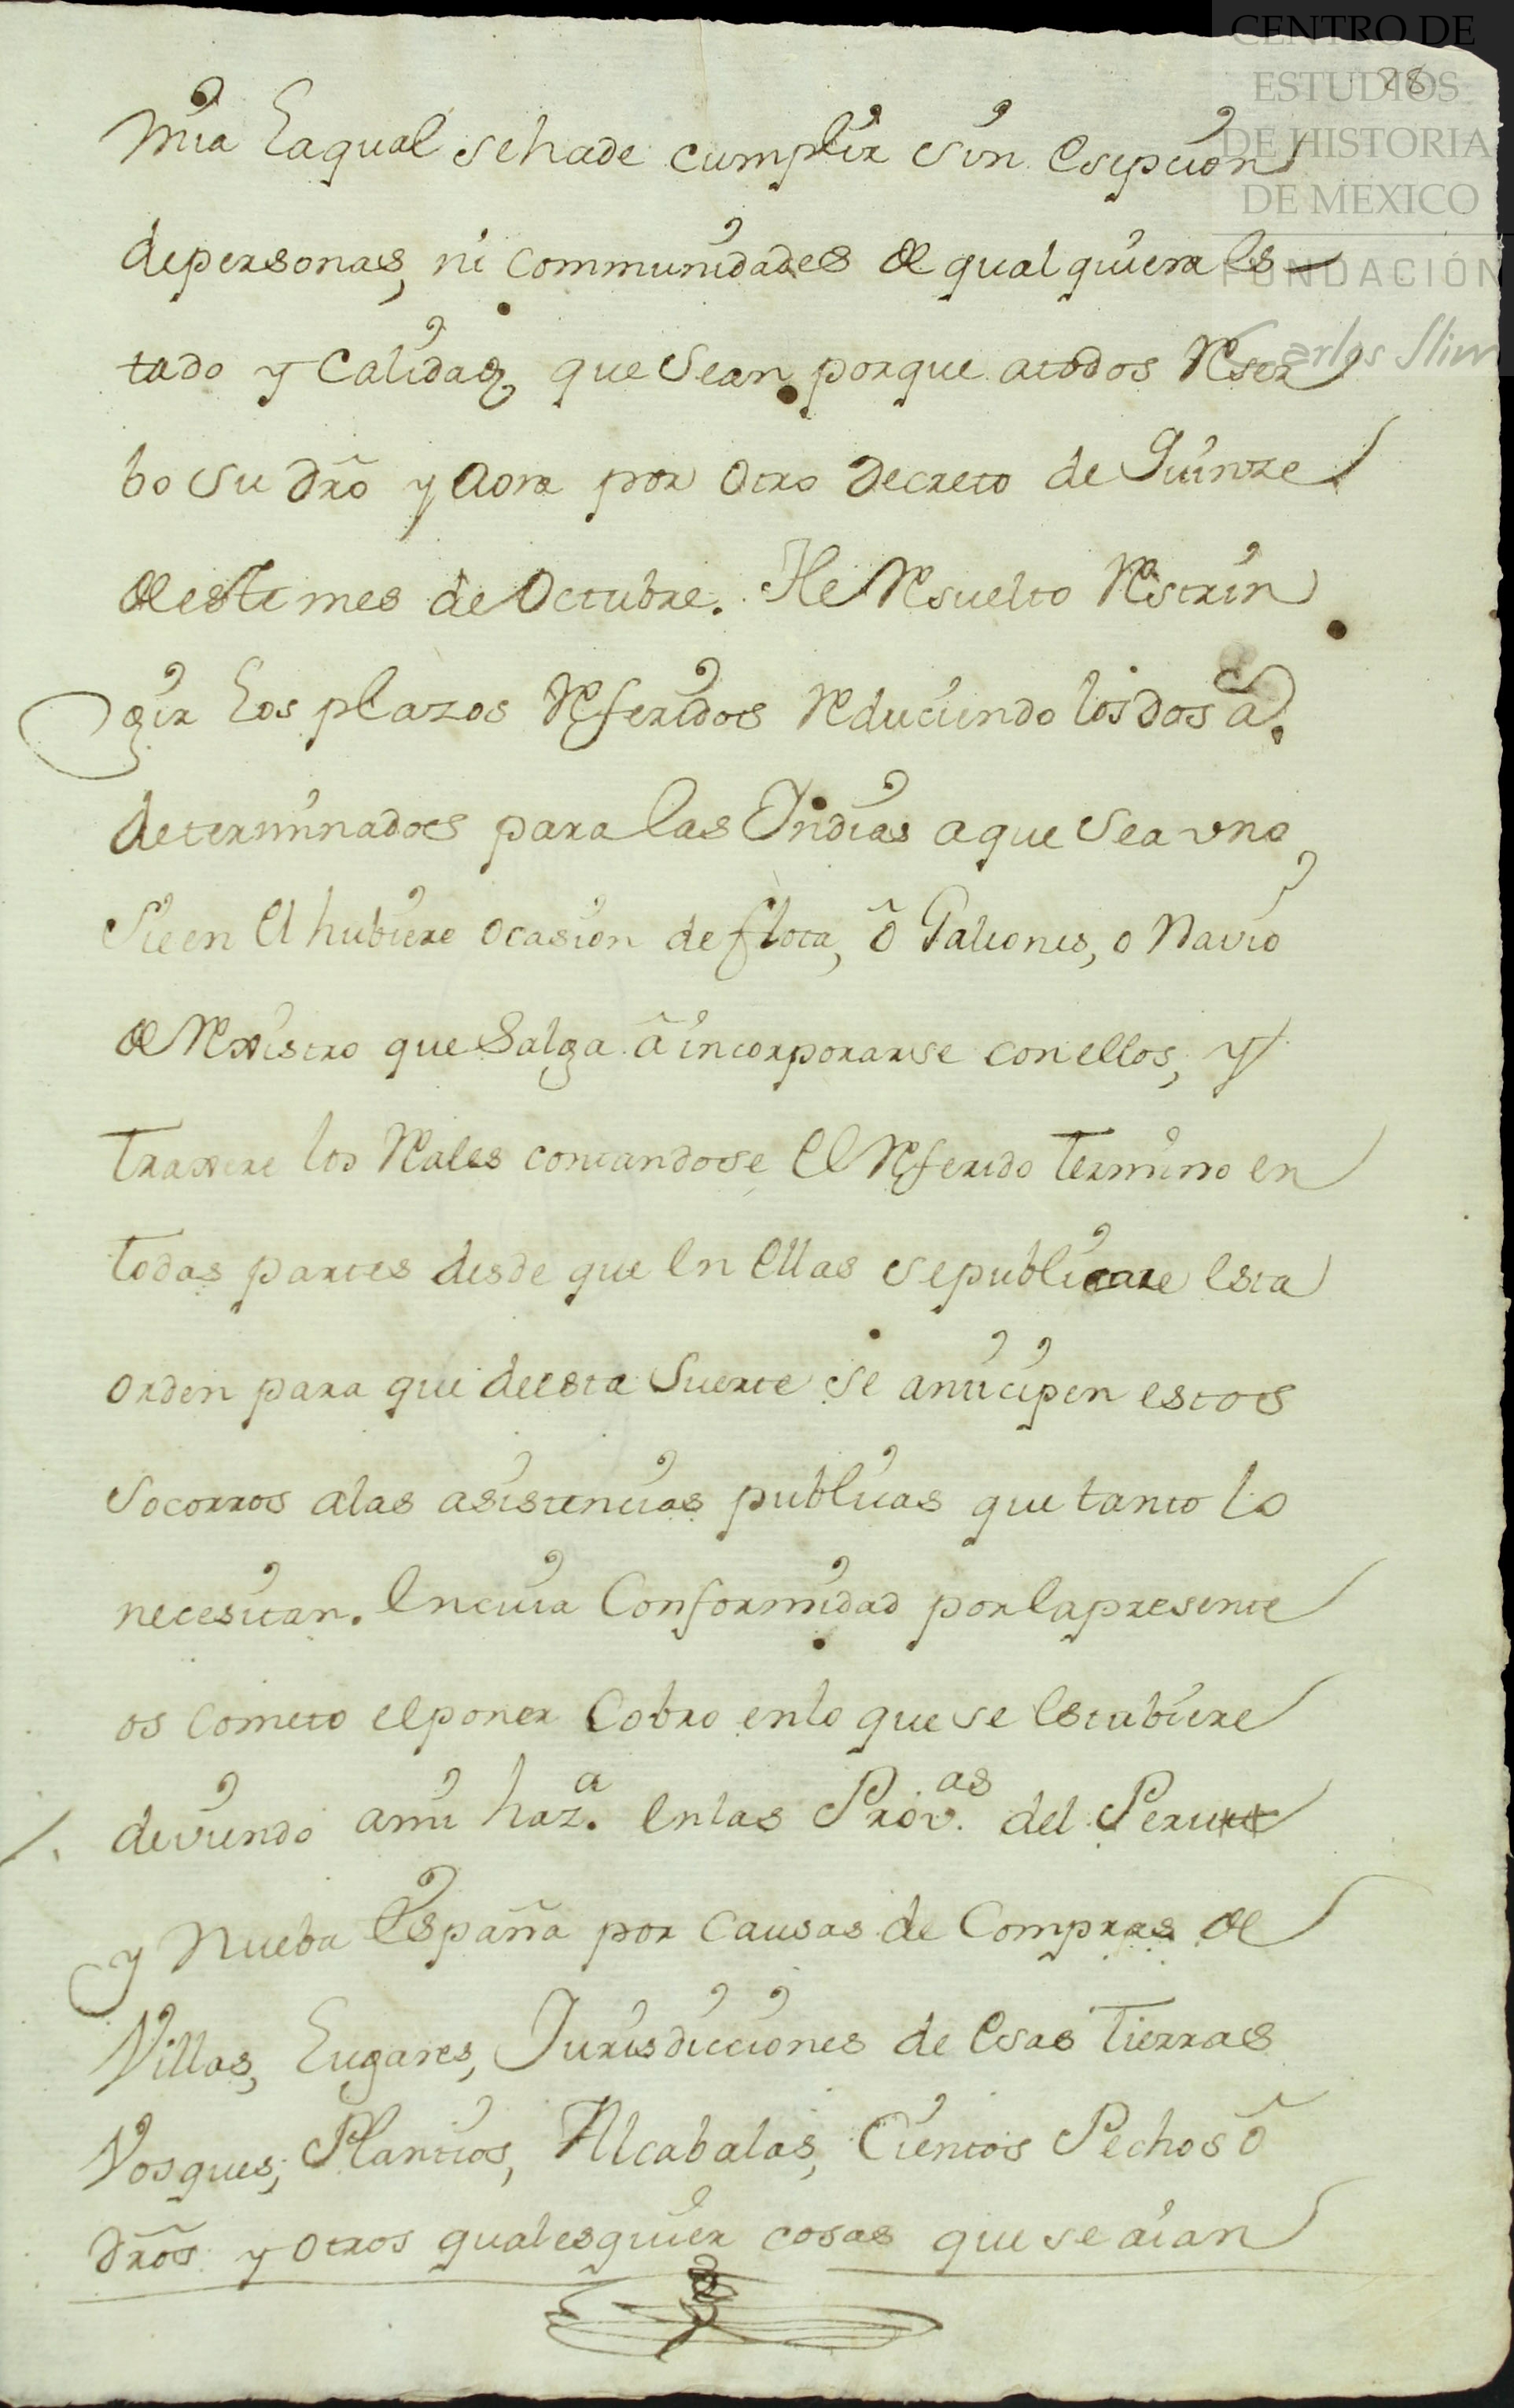 CENTRO DE
ESTUDIOS
DE HISTORIA
DE MEXICO
FUNDACIÓN
Carlos Slim
28
mia Laqual sehade cumplir sin Esepcion
depersonas, ni communidades de qualquiera es-
tado y Calidad, que sean porque atodos Reser
bo su dr̃o y aora por otro Decreto de Quinze
de este mes de Octubre. He Resuelto Restrin
gir Los plazos Referidos Reduciendo los dos a.
determinados para las Indias aque sea uno
si en el hubiere ocasion de flota, õ Galeones, o Navio
de Rexistro que salga ã incorporarse con ellos, y
traxere los Reales contandose el Referido termino en
todas partes desde que en ellas sepublicare esta
orden para que deesta suerte se anticipen estos
socorros alas asistencias publicas que tanto lo
necesitan. En cuia Conformidad por lapresente
os cometo elponer Cobro enlo que se estubiere
deviendo ami haz.ª enlas Prov.as del Peru
y Nueba España por causas de Compras de
Villas, Lugares, Jurisdicciones de esas tierras
Vosques, Plantios, Alcabalas, Cientos Pechos õ
dr̃os y otros qualesquier cosas que se aian